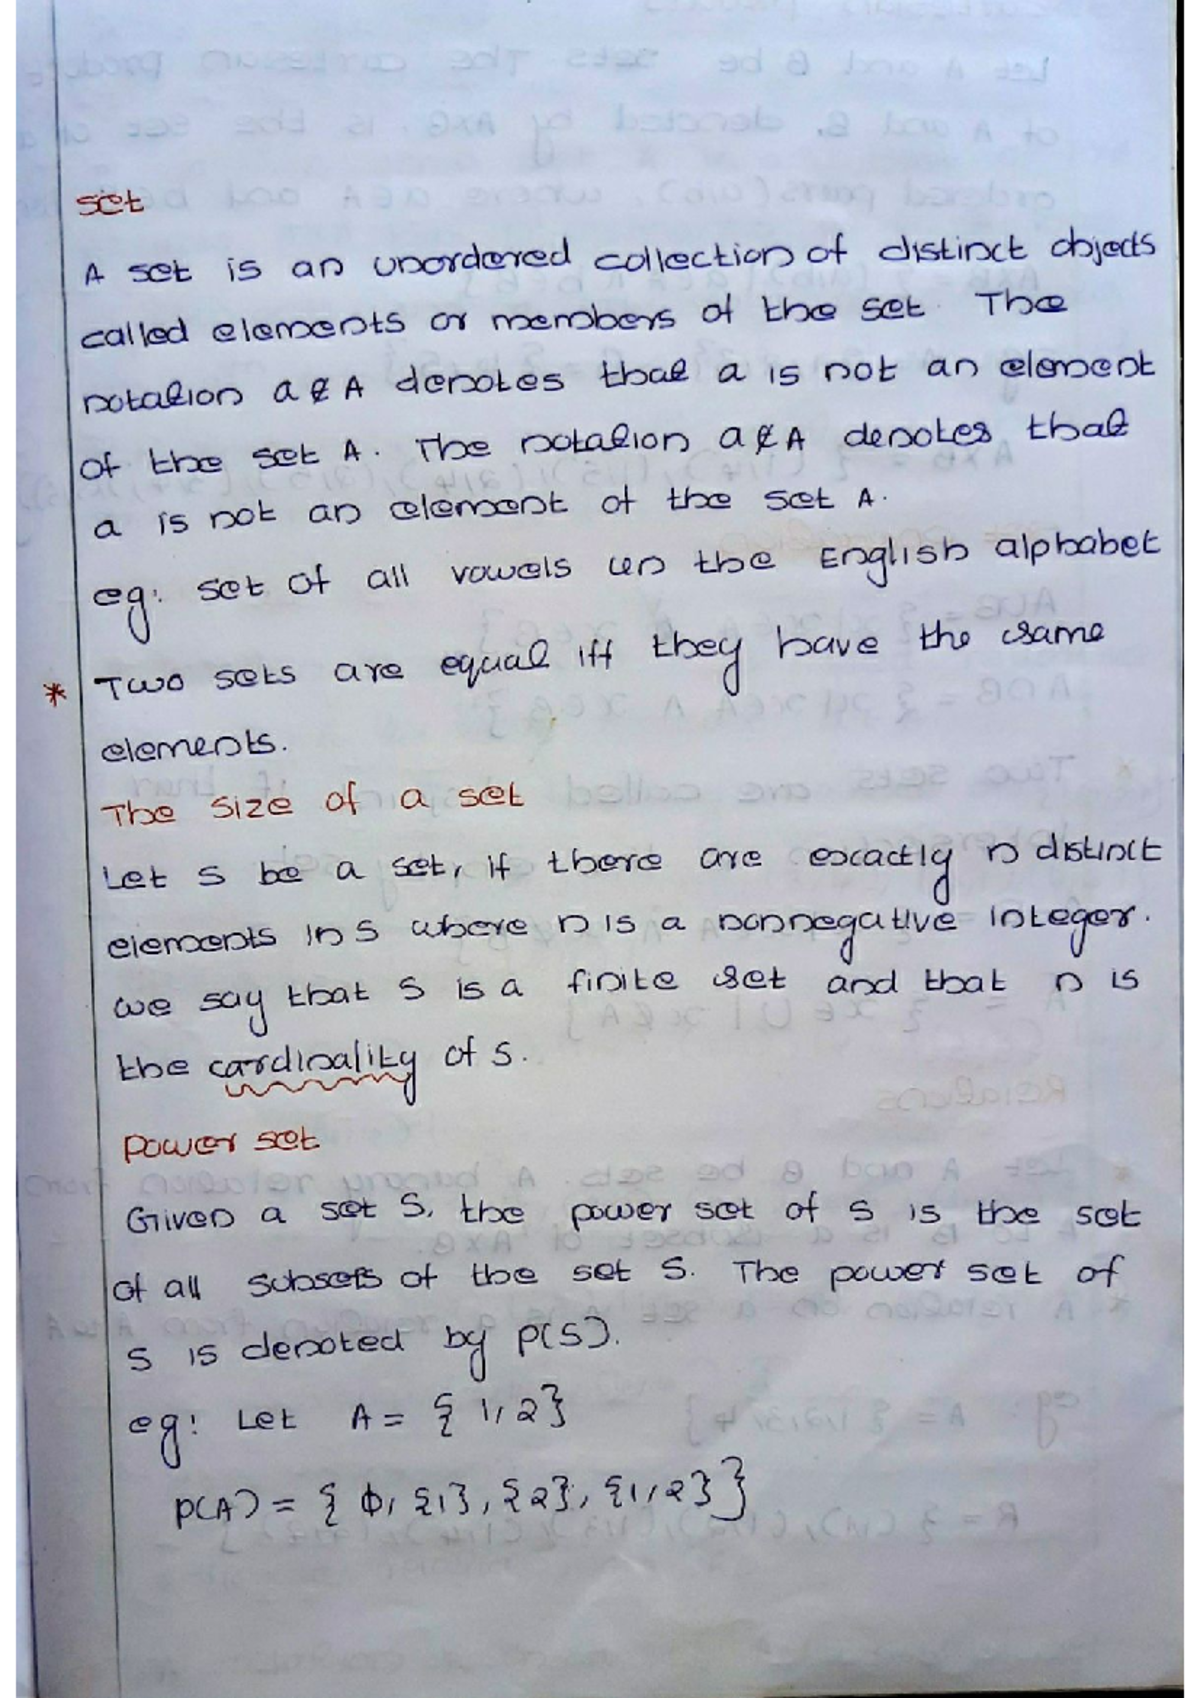 set
A set is an unordered collection of distinct objects
called elements or members of the set. The
notation a ∉ A denotes that a is not an element
of the set A. The notation a ∉ A denotes that
a is not an element of the set A.
eg: set of all vowels in the English alphabet
* Two sets are equal iff they have the same
elements.
The size of a set
Let S be a set, if there are exactly n distinct
elements in S where n is a nonnegative integer.
we say that S is a finite set and that n is
the cardinality of S.
Power set
Given a set S, the power set of S is the set
of all subsets of the set S. The power set of
S is denoted by P(S).
eg: Let A = { 1, 2 }
P(A) = { ϕ, {1}, {2}, {1, 2} }